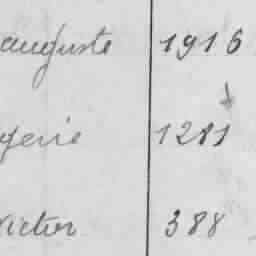 auguste 1916
génie 1281
Victor 388